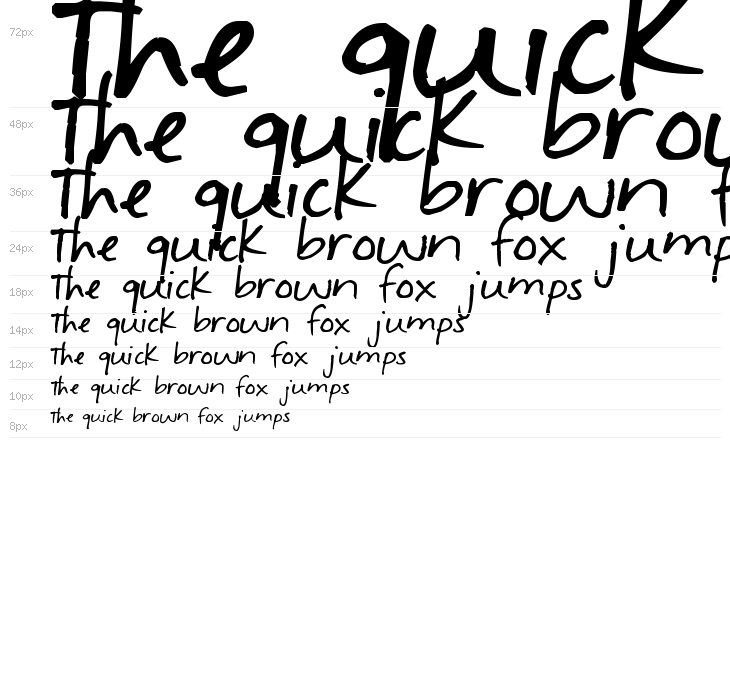 72px The quick
48px The quick brou
36px The quick brown f
24px The quick brown fox jump
18px The quick brown fox jumps
14px The quick brown fox jumps
12px The quick brown fox jumps
10px The quick brown fox jumps
8px The quick brown fox jumps